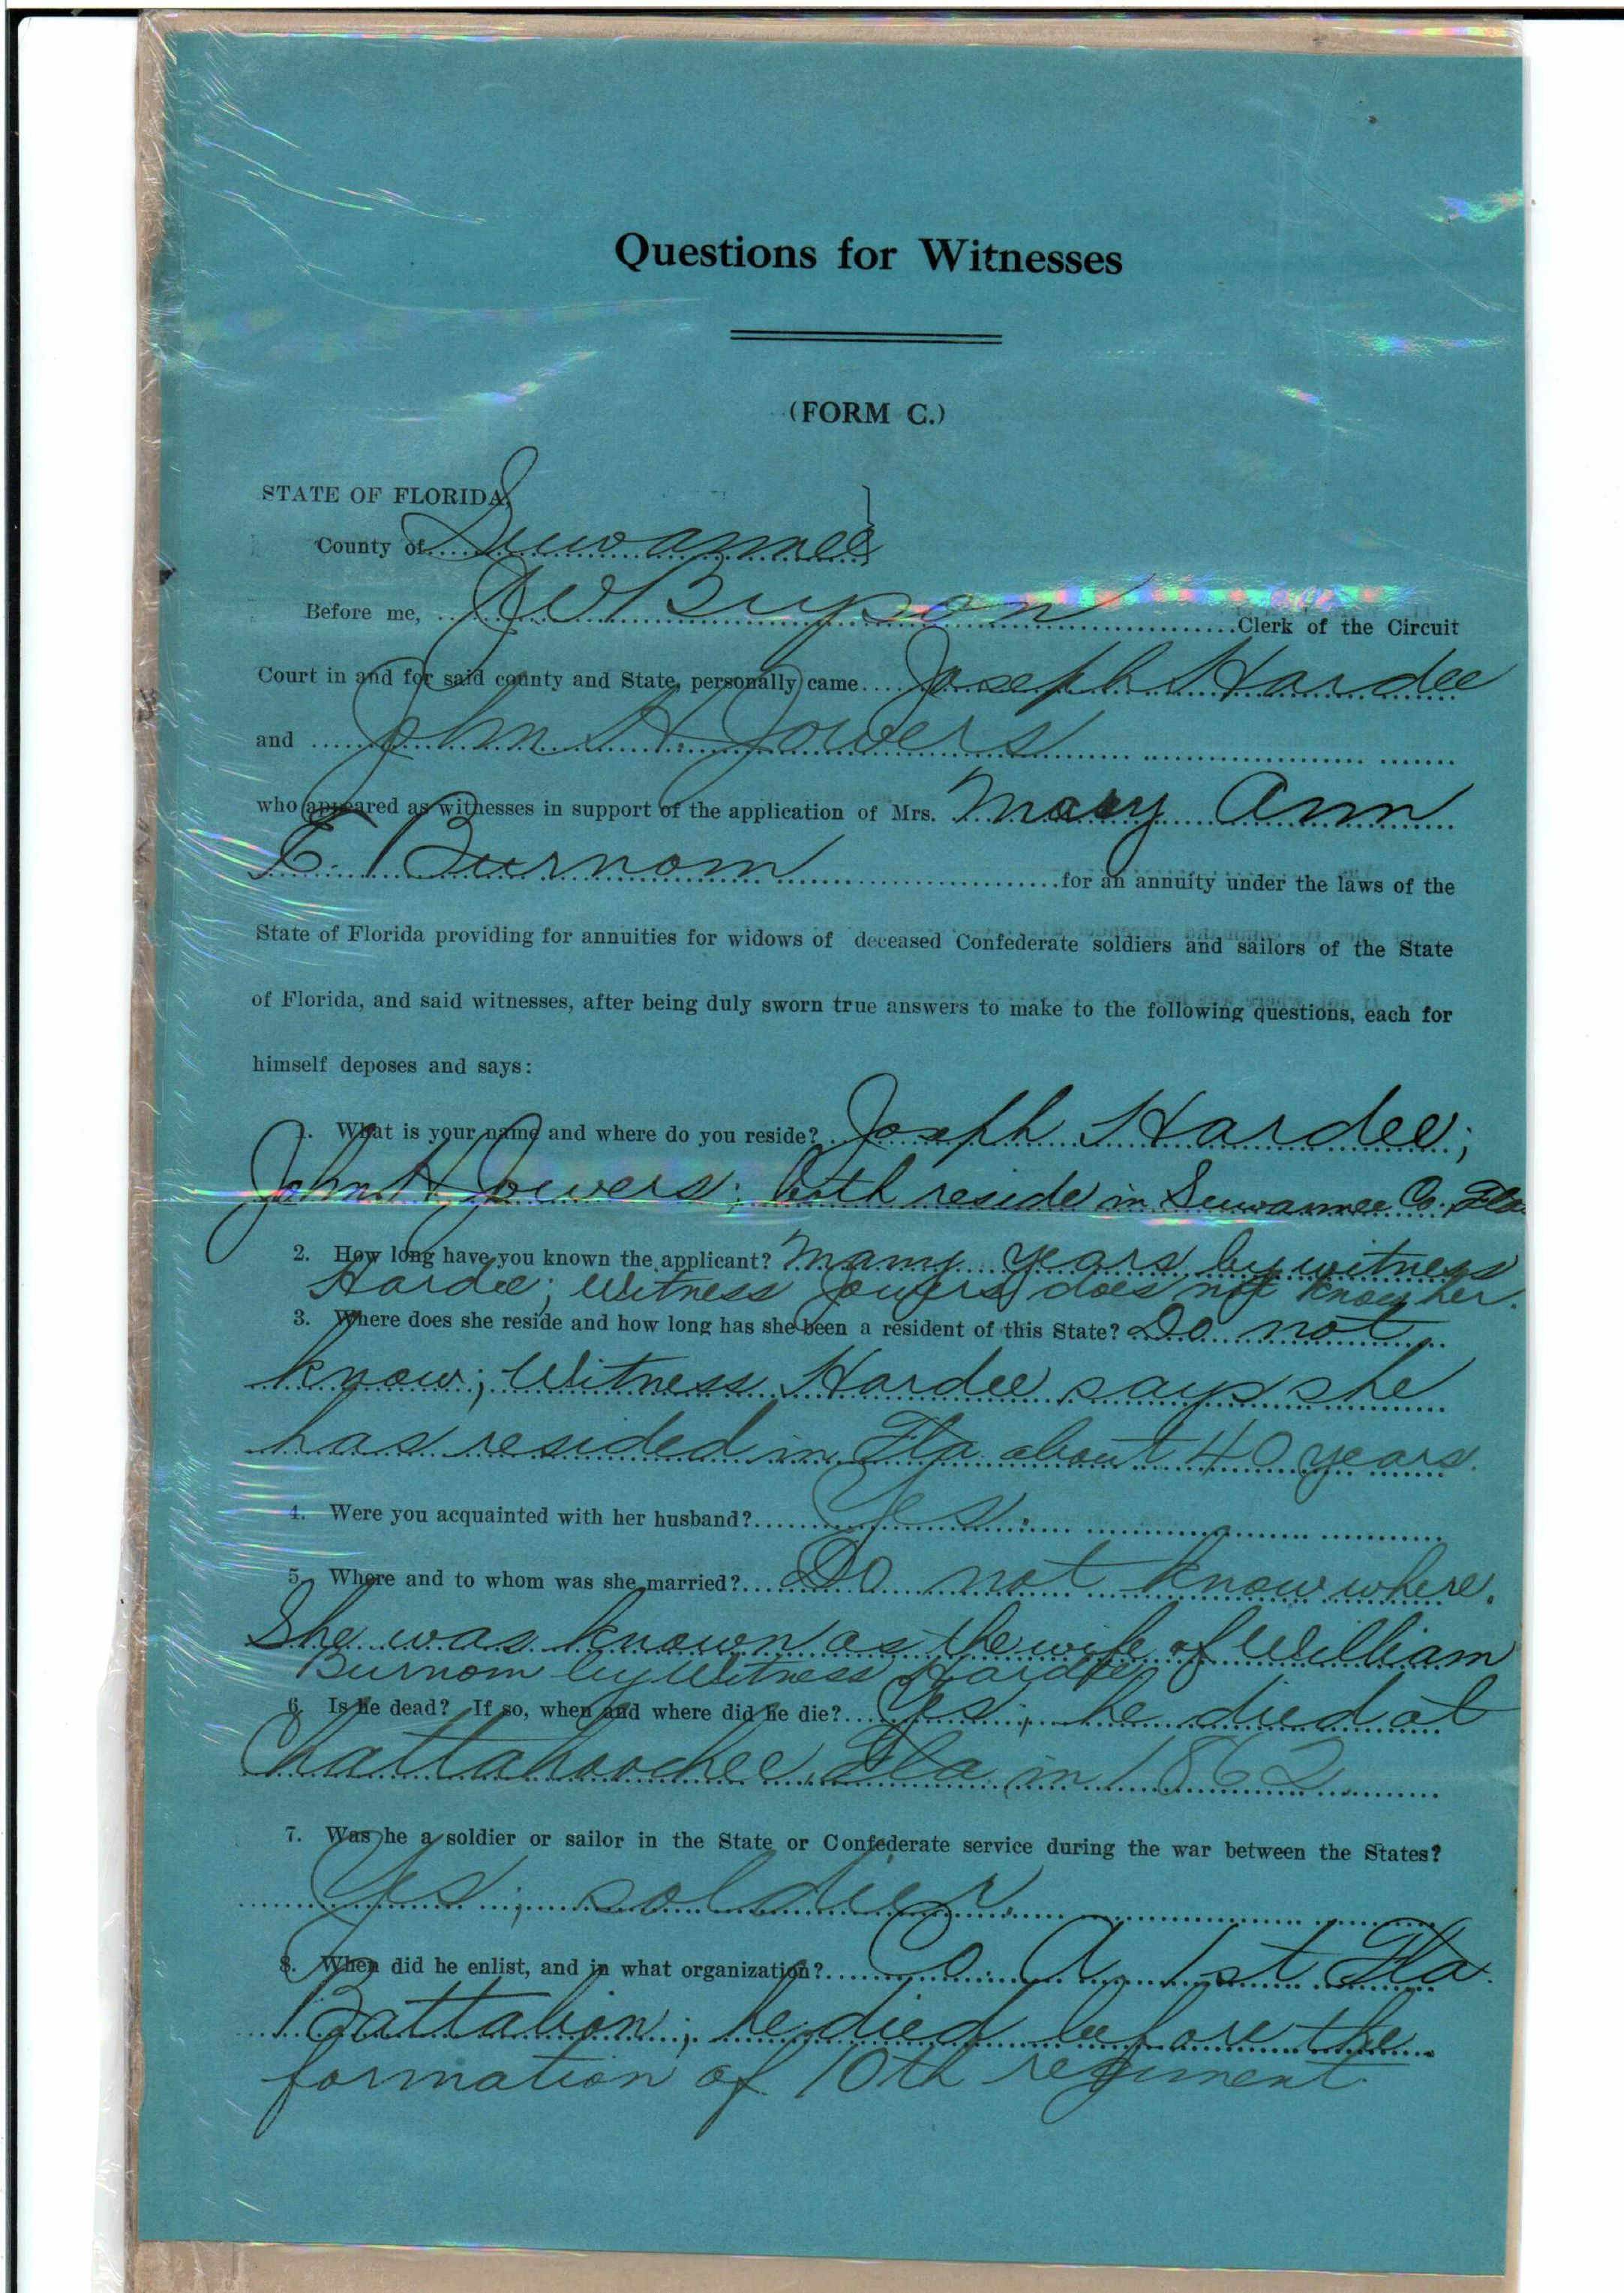 Questions for Witnesses
(FORM C.)
STATE OF FLORIDA,
County of Suwannee
Before me, J W Bryson Clerk of the Circuit
Court in and for said county and State, personally came Joseph Hardee
and John H. Jowers
who appeared as witnesses in support of the application of Mrs. Mary Ann
E. Burnom for an annuity under the laws of the
State of Florida providing for annuities for widows of deceased Confederate soldiers and sailors of the State
of Florida, and said witnesses, after being duly sworn true answers to make to the following questions, each for
himself deposes and says:
1. What is your name and where do you reside? Joseph Hardee;
John H Jowers; both reside in Suwannee Co. Fla.
2. How long have you known the applicant? Many years by witness
Hardee; Witness Jowers does not know her.
3. Where does she reside and how long has she been a resident of this State? Do not
know; Witness Hardee says she
has resided in Fla about 40 years.
4. Were you acquainted with her husband? Yes.
5. Where and to whom was she married? Do not know where.
She was known as the wife of William
Burnom by Witness Hardee
6. Is he dead? If so, when and where did he die? Yes; he died at
Chattahoochee, Fla. in 1862
7. Was he a soldier or sailor in the State or Confederate service during the war between the States?
Yes; soldier.
8. When did he enlist, and in what organization? Co. A. 1st Fla.
Battalion; he died before the
formation of 10th regiment